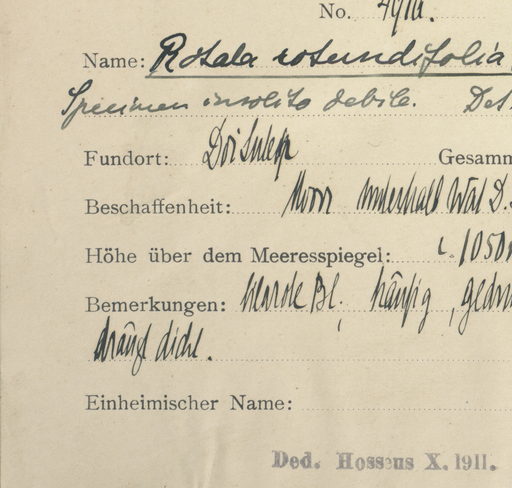 No. 491a.
Name: Rotala rotundifolia
Specimen insolito debile. Det
Fundort: Doi Sutep Gesamm
Beschaffenheit: Moor unterhalb Wat D.
Höhe über dem Meeresspiegel: c. 1050
Bemerkungen: Bl. häufig, gedr
drängt dicht.
Einheimischer Name:
Ded. Hosseus X. 1911.